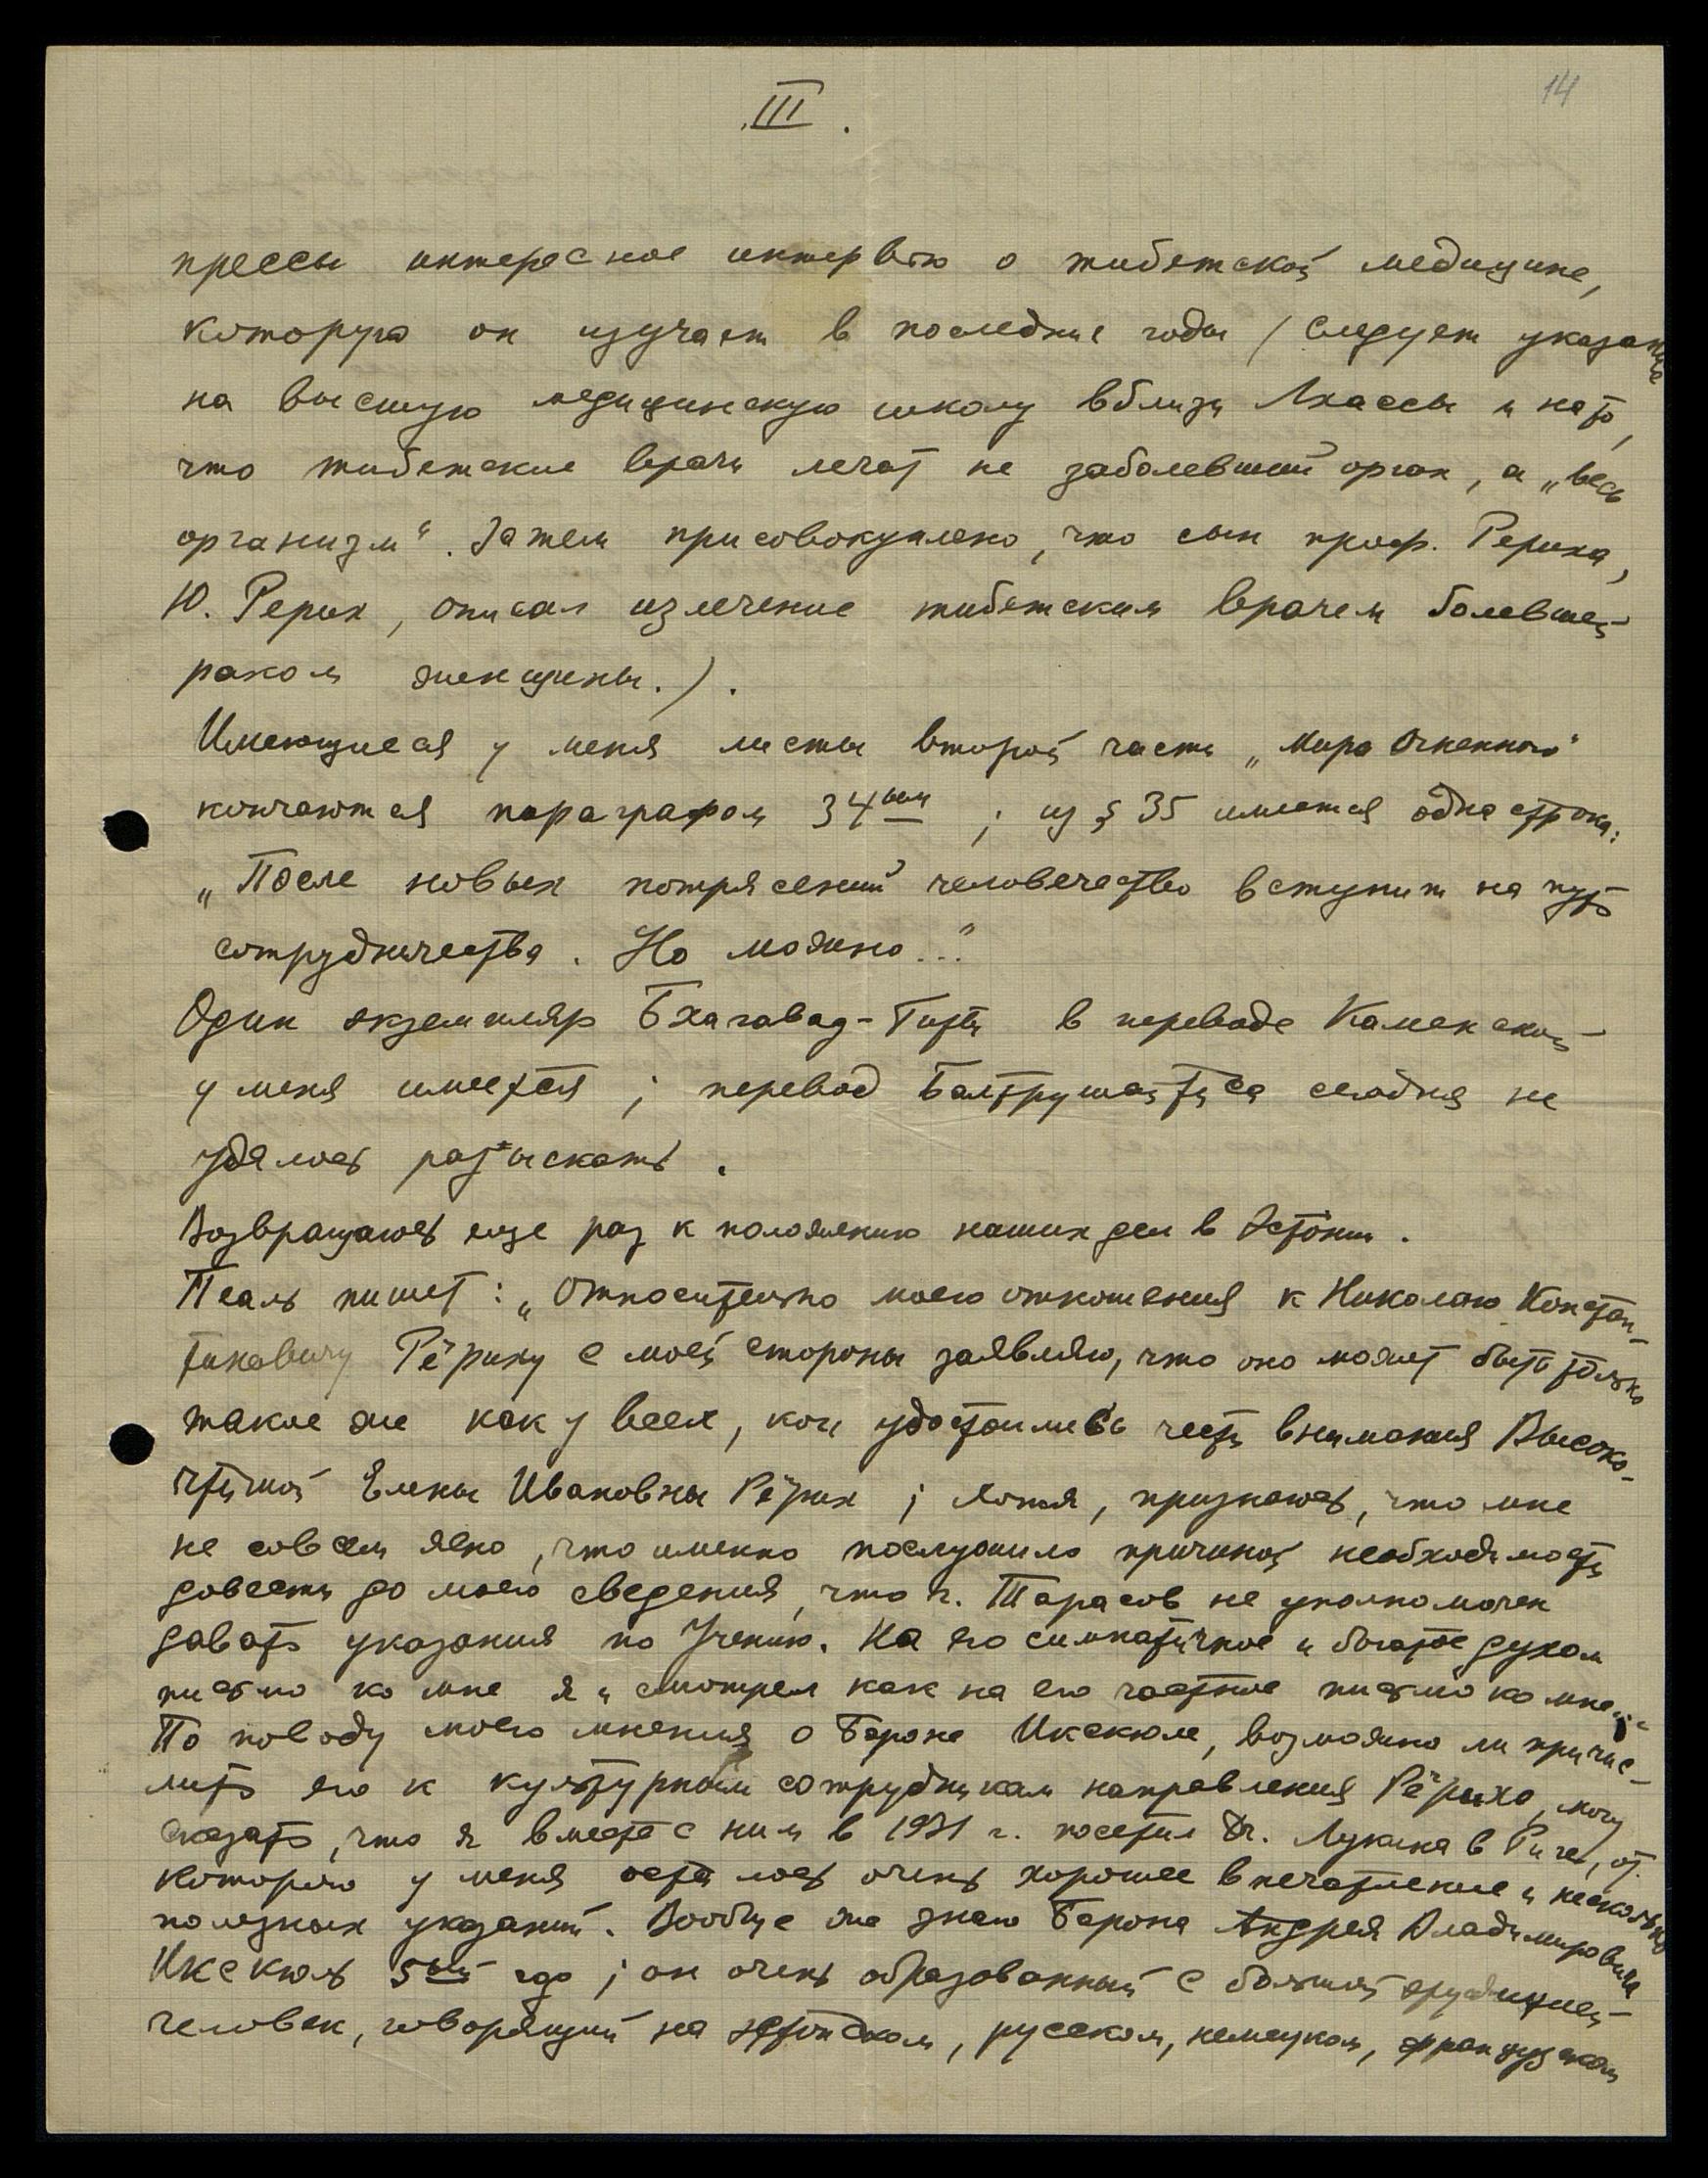 14
III.
прессы интересное интервью о тибетской медицине,
которую он изучает в последние годы (следует указание
на высшую медицинскую школу вблизи Лхассы и на то,
что тибетские врачи лечат не заболевший орган, а „весь
организм“. Затем присовокуплено, что сын проф. Рериха,
Ю. Рерих, описал излечение тибетским врачем болевшей
раком женщины.).
Имеющиеся у меня листы второй части „Мира Огненного“
кончаются параграфом 34ым ; из § 35 имеется одна строка:
„После новых потрясений человечество вступит на путь
сотрудничества. Но можно...“
Один экземпляр Бхагавад-Гиты в переводе Каменской
у меня имеется ; перевод Балтрушайтиса сегодня не
удалось разыскать.
Возвращаюсь еще раз к положению наших дел в Эстонии.
Пеаль пишет: „Относительно моего отношения к Николаю Констан-
тиновичу Рёриху с моей стороны заявляю, что оно может быть только
такое же как у всех, кои удостоились чести внимания Высоко-
чтимой Елены Ивановны Рёрих ; хотя, признаюсь, что мне
не совсем ясно, что именно послужило причиной необходимости
довести до моего сведения, что г. Тарасов не уполномочен
давать указания по Учению. На его симпатичное и богатое духом
письмо ко мне я и смотрел как на его частное письмо ко мне.
По поводу моего мнения о Бароне Икскюле, возможно ли причис-
лить его к культурным сотрудникам направления Рёриха, могу
сказать, что я вместе с ним в 1931 г. посетил Dr. Лукина в Риге, от
которого у меня осталось очень хорошее впечатление и несколько
полезных указаний. Вообще же знаю Барона Андрея Владимировича
Икскюль 5ый год ; он очень образованный с большой эрудицией
человек, говорящий на эстонском, русском, немецком, французском